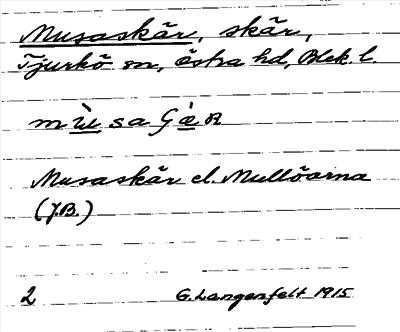 Musaskär, skär,
Tjurkö sn, Östra hd, Blek. l.
mùsaʃæ̀r
Musaskär el. Mullöarna
(J.B.)
2 G. Langenfelt 1915